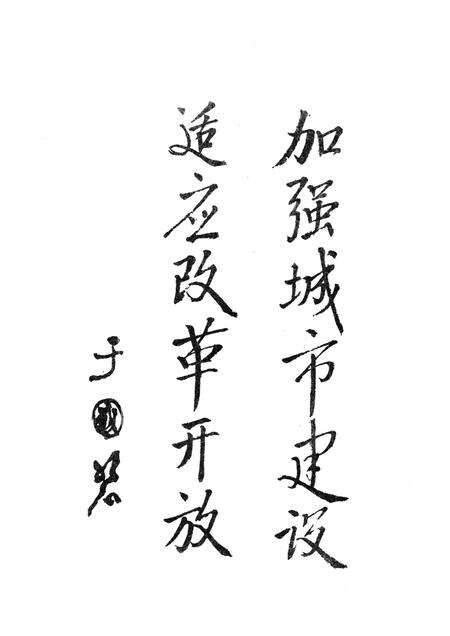 加强城市建设
适应改革开放
于国